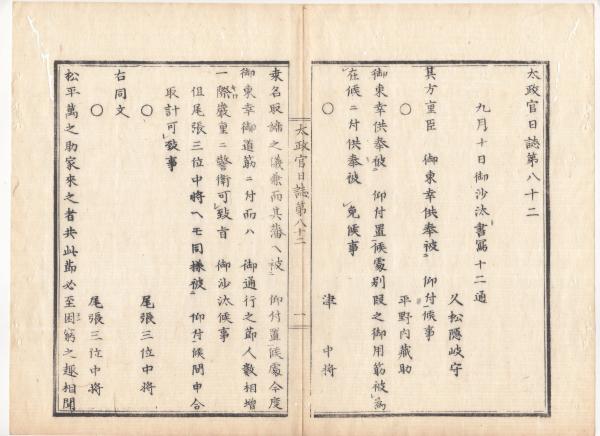 太政官日誌第八十二
九月十日御沙汰書寫十二通
久松隱岐守
其方重臣 御東幸供奉被 仰付候事
平野内藏助
御東幸供奉被 仰付置候處別段之御用筋被爲
在候ニ付供奉被 免候事
○
津 中将
太政官日誌第八十二
一
桒名取締之儀兼而其藩ヘ被 仰付置候處今度
御東幸御道筋ニ付而ハ 御通行之節人數相増
一際嚴重ニ警衛可致旨 御沙汰候事
但尾張三位中将ヘモ同様被 仰付候間申合
取計可致事
○
尾張三位中将
右同文
○
尾張三位中将
松平萬之助家來之者共此節必至困窮之趣相聞